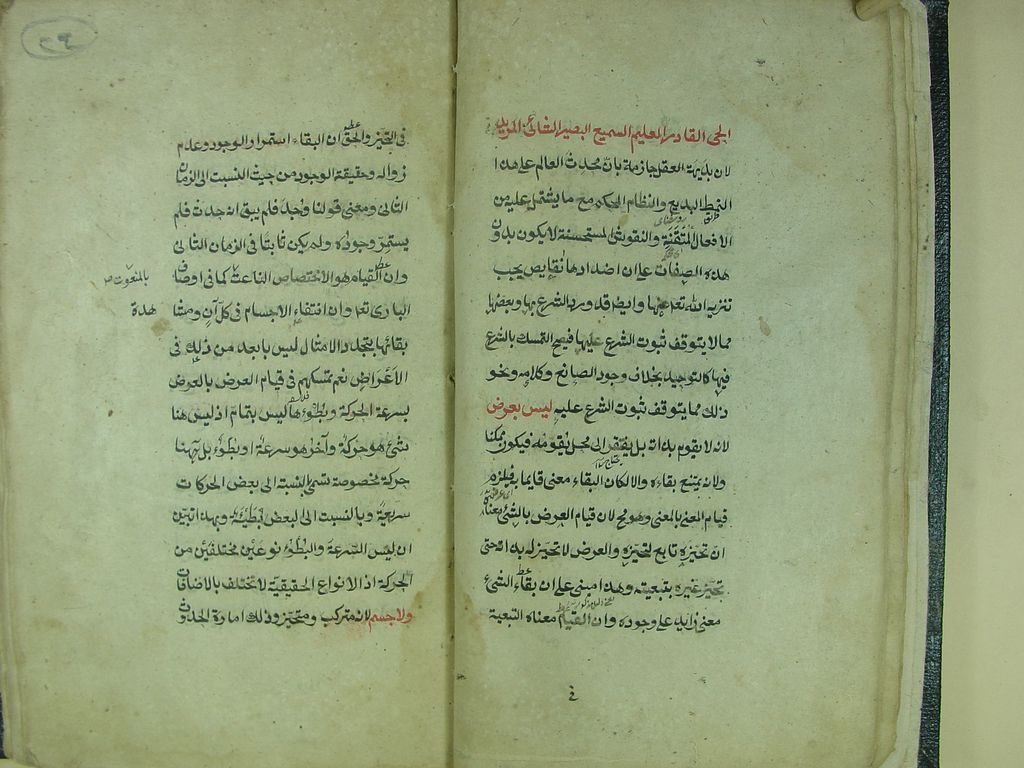 الحى القادر العليم السميع البصير الشائئ المريد
لان بديهة العقل جازمة بان محدث العالم على هذا
النمط البديع والنظام المحكم مع ما يشتمل عليه من
الافعال المتقنة والنقوش المستحسنة لا يكون بدون
هذه الصفات على ان اضدادها نقايص يجب
تنزيه الله تعه عنها وايضا قد ورد الشرع بها وبعضها
مما لا يتوقف ثبوت الشرع عليها فيصح التمسك بالشرع
فيها كالتوحيد بخلاف وجود الصانع وكلامه ونحو
ذلك مما يتوقف ثبوت الشرع عليه ليس بعرض
لانه لا يقوم بذاته بل يفتقر الى محل يقومه فيكون ممكنا
ولانه يمتنع بقاءه والا لكان البقاء معنى قايما به فيلزم
قيام المعنى بالمعنى وهو مح لان قيام العرض بالشئ معناه
ان تحيزه تابع لتحيزه والعرض لا تحيز له بذاته حتى
يتحيز غيره بتبعيته وهذا مبنى على ان بقاء الشئ
معنى زايد على وجوده وان القيام معناه التبعية
فى
فى التحيز والحق ان البقاء استمرار الوجود وعدم
زواله وحقيقة الوجود من حيث النسبت الى الزمان
الثانى ومعنى قولنا وجد فلم يبق انه حدث فلم
يستمر وجوده ولم يكن ثابتا فى الزمان الثانى
وان القيام هو الاختصاص الناعت كما فى اوصاف
بالمنعوت
البارى تعه وان انتفاء الاجسام فى كل آن ومشا
هدة
بقائها بتجدد الامثال ليس بابعد من ذلك فى
الاعراض نعم تمسكهم فى قيام العرض بالعرض
بسرعة الحركة وبطوءها ليس بتمام اذ ليس هنا
شئ هو حركة وآخر هو سرعة او بطوء بل ههنا
حركة مخصوصة تسمى بالنسبة الى بعض الحركات
سريعة وبالنسبت الى البعض بطيئة وبهذا تبين
ان ليس السرعة والبطوء نوعين مختلفين من
الحركة اذ الانواع الحقيقية لا تختلف بالاضافات
ولا جسم لانه متركب ومتحيز وذلك امارة الحدوث